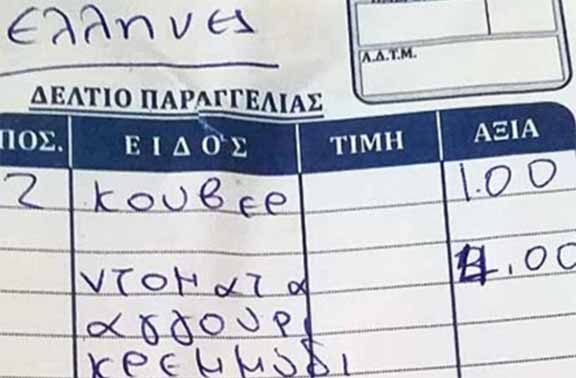 ελληνες
Λ.Δ.Τ.Μ.
ΔΕΛΤΙΟ ΠΑΡΑΓΓΕΛΙΑΣ
ΠΟΣ. ΕΙΔΟΣ ΤΙΜΗ ΑΞΙΑ
2 κουβερ 1.00
ντοματα 4.00
αγγουρι
κρεμμυδι